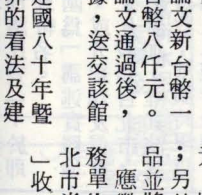 論文新台幣一
台幣八仟元。
論文通過後，
據，送交該館
建國八十年暨
界的看法及建
；另
品並將
應
務單位
北市
」收